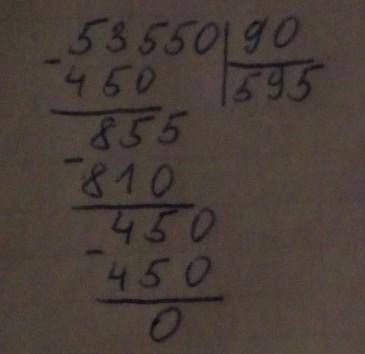 - 53550 | 90
450 | 595
855
- 810
450
- 450
0